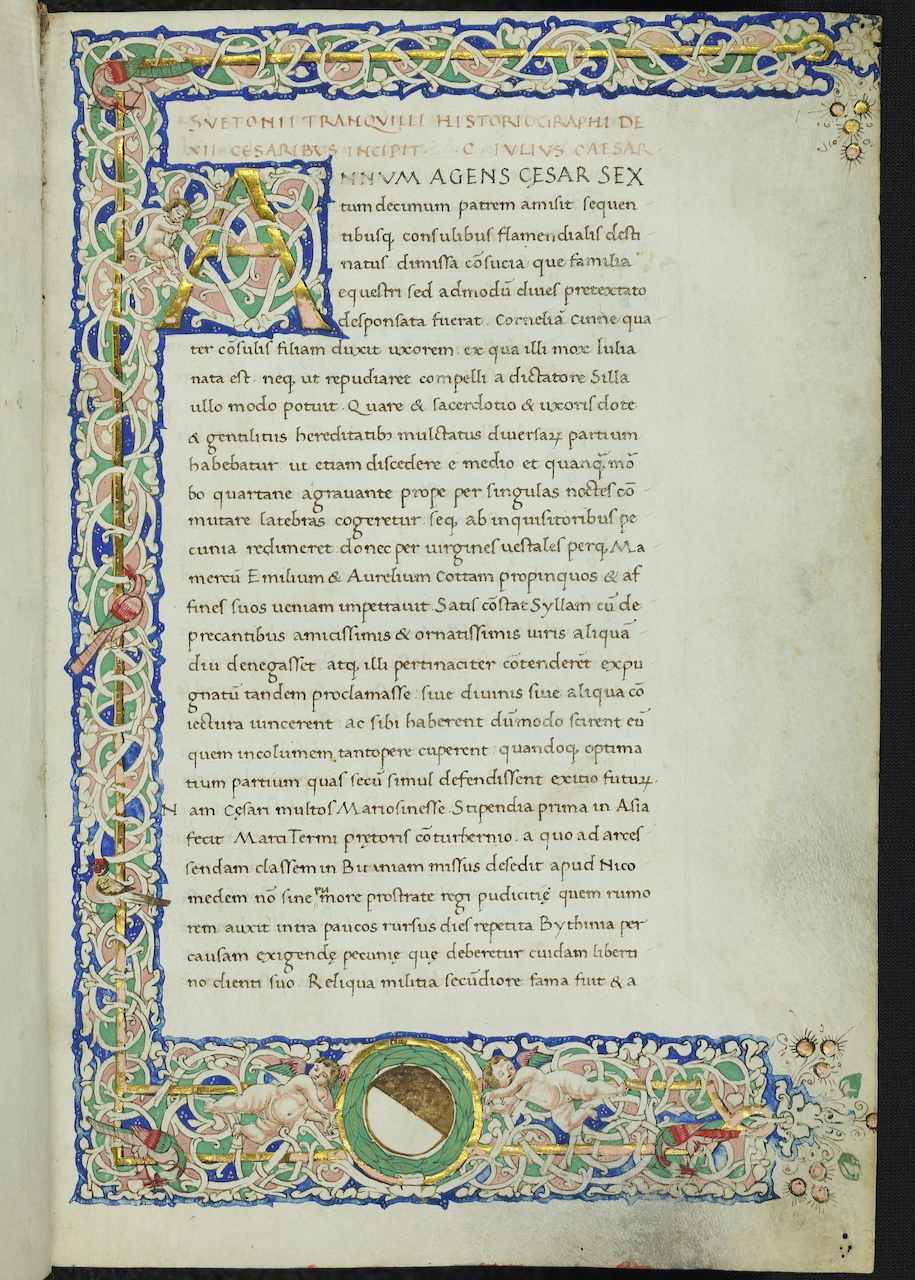 SVETONII TRANQVILLI HISTORIOGRAPHI DE
XII CESARIBVS INCIPIT. C IVLIVS CAESAR
ANNVM AGENS CĘSAR SEX
tum decimum patrem amisit sequen
tibusq; consulibus flamen dialis desti
natus dimissa cōsucia que familia
equestri sed admodū diues pretextato
desponsata fuerat. Corneliā Cinne qua
ter cōsulis filiam duxit uxorem: ex qua illi mox Iulia
nata est. neq; ut repudiaret compelli a dictatore Silla
ullo modo potuit. Quare & sacerdotio & uxoris dote
& gentilitiis hereditatib; mulctatus diuersaꝝ partium
habebatur. ut etiam discedere e medio et quanq̃ mō
bo quartane agrauante prope per singulas noctes cō
mutare latebras cogeretur. seq; ab inquisitoribus pe
cunia redimeret donec per uirgines uestales perq; Ma
mercū Emilium & Aurelium Cottam propinquos & af
fines suos ueniam impetrauit. Satis cōstat Syllam cū de
precantibus amicissimis & ornatissimis uiris aliquā
diu denegasset atq; illi pertinaciter cōtenderēt expu
gnatū tandem proclamasse: siue diuinis siue aliqua cō
iectura uincerent: ac sibi haberent dūmodo scirent eū
quem incolumem tantopere cuperent: quandoq; optima
tium partium quas secū simul defendissent exitio futuꝝ.
Nam Cęsari multos Marios inesse. Stipendia prima in Asia
fecit Marci Termi pretoris cōturbernio. a quo ad arces
sendam classem in Bituniam missus desedit apud Nico
medem nō sine rumore prostrate regi pudicitię quem rumo
rem auxit intra paucos rursus dies repetita Bythinia per
causam exigendę pecunię quę deberetur cuidam liberti
no clienti suo. Reliqua militia secūdiore fama fuit & a